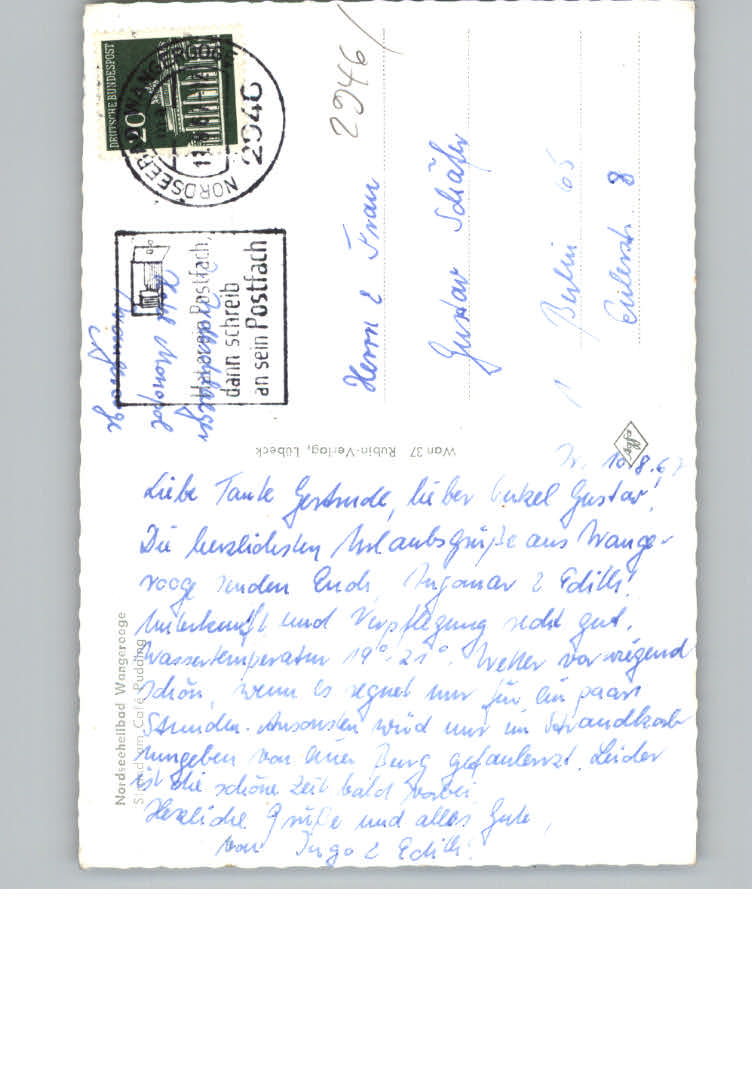 2946
DEUTSCHE BUNDESPOST
20
NORDSEEBAD WANGEROOGE
2946
Hat er ein Postfach,
dann schreib
an sein Postfach
Hotel Monopol
Wangerooge
Herrn & Frau
Gustav Schäfer
1 Berlin 65
Eulerstr. 8
Wan 37 Rubin-Verlag, Lübeck
Nordseeheilbad Wangerooge
Strand am Café Pudding
W. 10.8.67
Liebe Tante Gertrude, lieber Onkel Gustav!
Die herzlichsten Urlaubsgrüße aus Wange-
rooge senden Euch Ingomar & Edith!
Unterkunft und Verpflegung recht gut.
Wassertemperatur 19°-21°. Wetter vorwiegend
schön, wenn es regnet nur für ein paar
Stunden. Ansonsten wird nur im Strandkorb
umgeben von einer Burg gefaulenzt. Leider
ist die schöne Zeit bald vorbei.
Herzliche Grüße und alles Gute,
von Ingo & Edith!